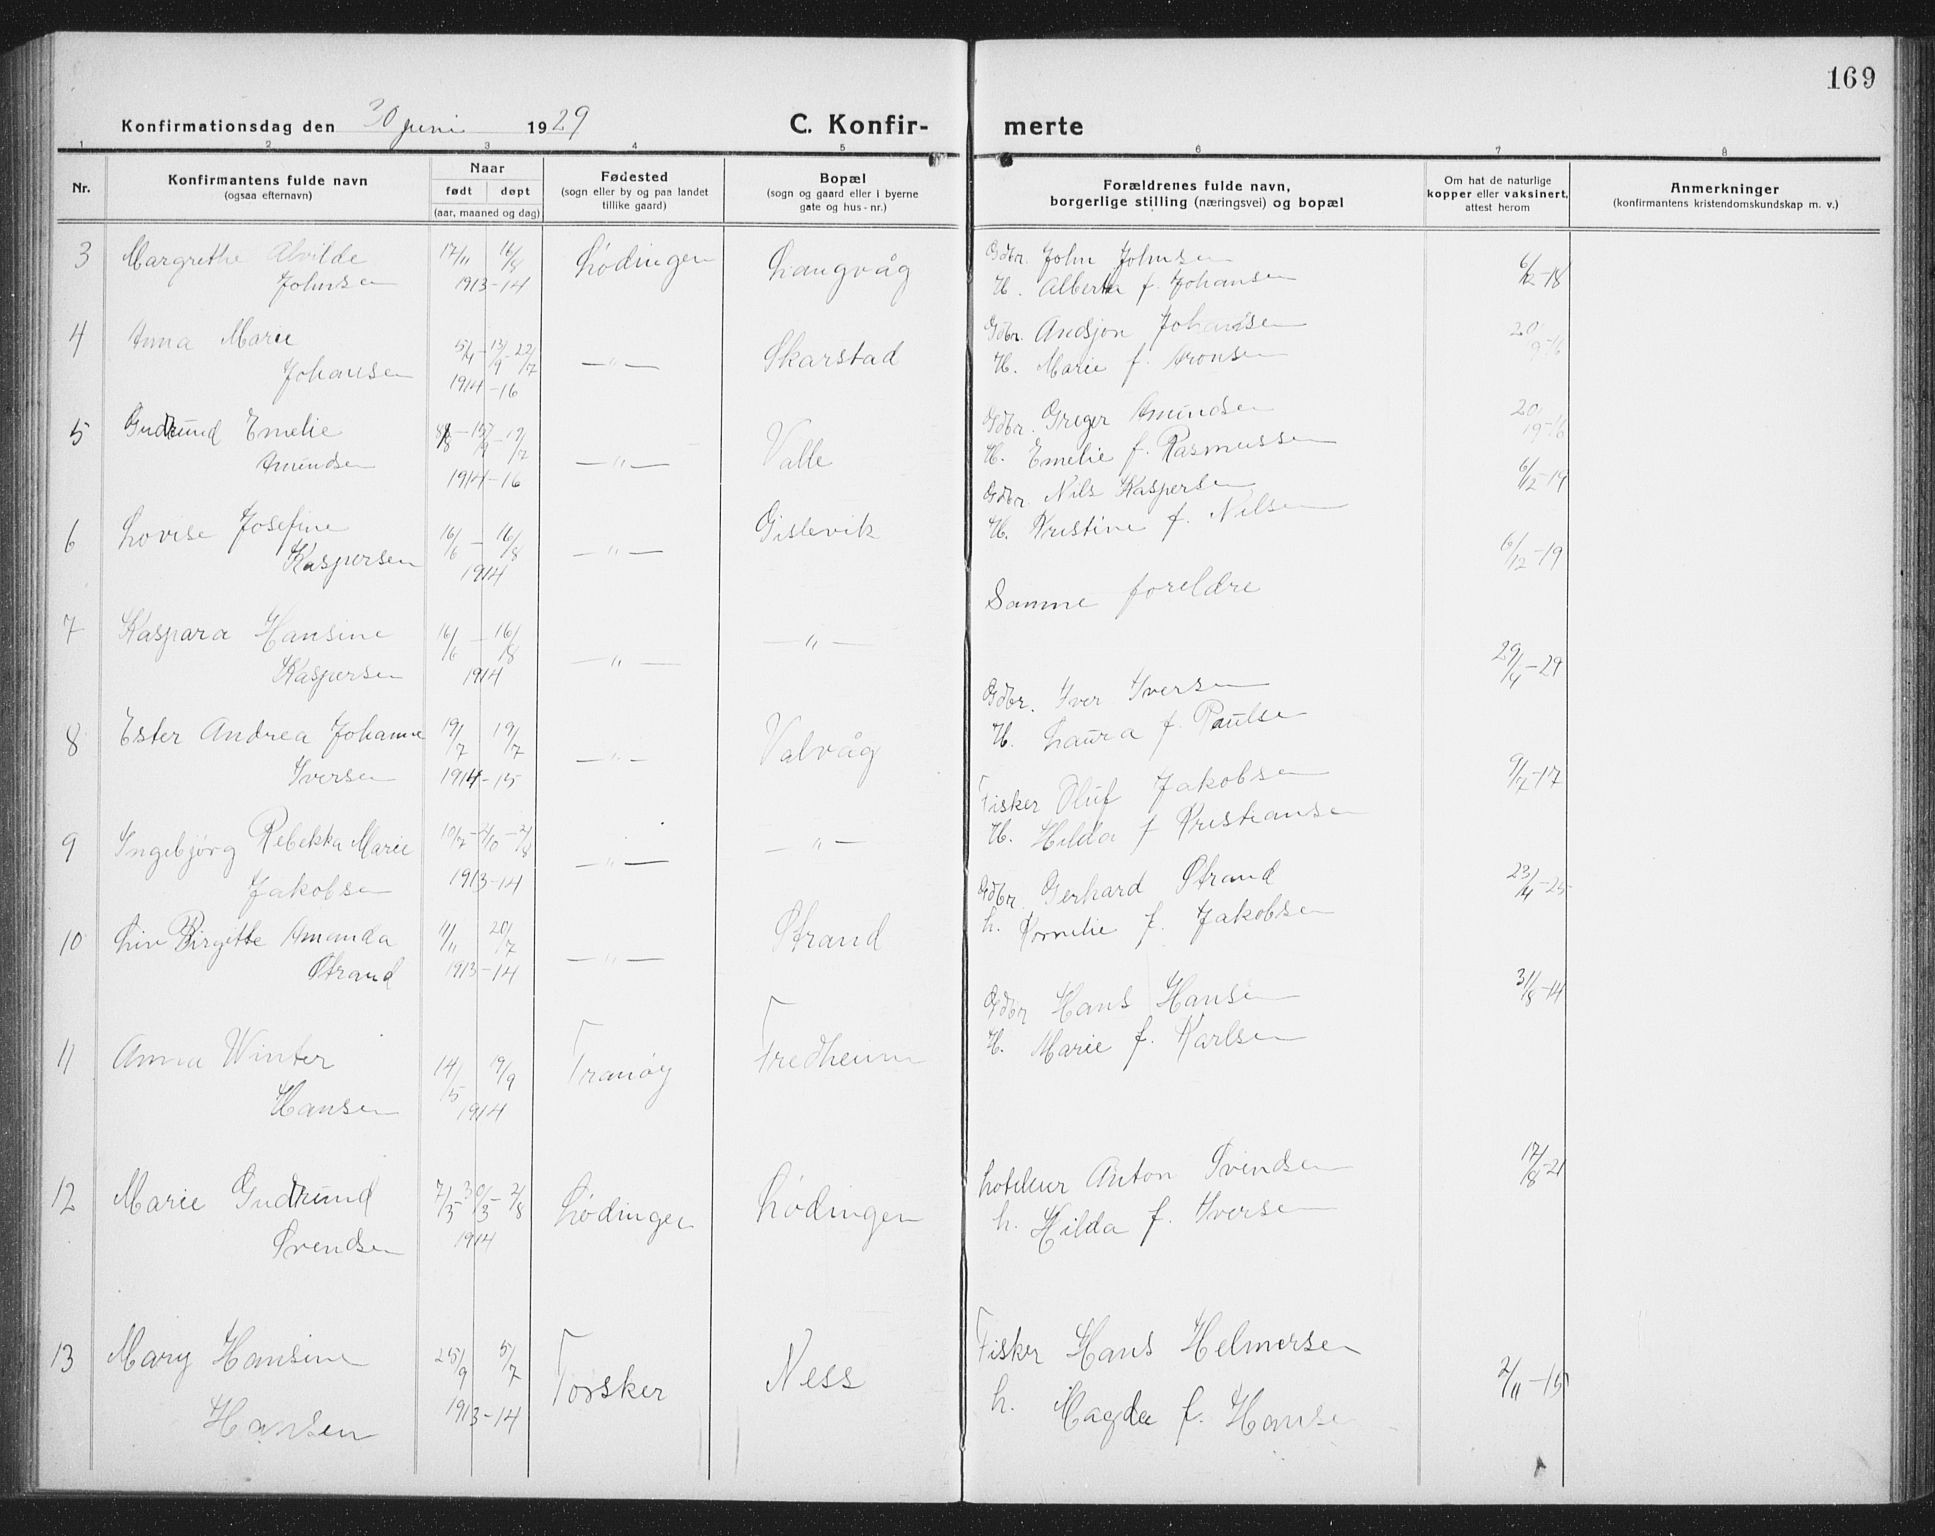 169
Konfirmationsdag den 30 juni 1929 C. Konfir- merte
1 2 3 4 5 6 7 8
Nr. Konfirmantens fulde navn (ogsaa efternavn) Naar født døpt (aar, maaned og dag) Fødested (sogn eller by og paa landet tillike gaard) Bopæl (sogn og gaard eller i byerne gate og hus-nr.) Forældrenes fulde navn, borgerlige stilling (næringsvei) og bopæl Om hat de naturlige kopper eller vaksinert, attest herom Anmerkninger (konfirmantens kristendomskundskap m. v.)
3 Margrethe Alvilde 17/11 16/8 Lødingen Langvåg Gdbr. John Johnsen 6/12-18
Johnsen 1913-14 H. Alberta f. Johansen
4 Anna Marie 5/4-13/9-22/7 —"— Skarstad Gdbr. Andsjon Johansen
Johansen 1914-16 H. Marie f. Aronsen
5 Gudrund Emelie —"— Valle Gdbr. Greger Amundsen
Amundsen 1914-16 H. Emelie f. Rasmussen
6 Lovise Josefine 16/6 - 16/8 —"— Gislevik Gdbr Nils Kaspersen 6/12-19
Kaspersen 1914 H. Kristine f. Nilsen
7 Kaspara Hansine 16/6 - 16/8 —"— —"— Samme foreldre 6/12-19
Kaspersen 1914
8 Ester Andrea Johanne 19/7 19/7 —"— Valvåg Gdbr. Iver Iversen 29/4-29
Iversen 1914-15 H. Laura f. Paulsen
9 Ingebjørg Rebekka Marie 10/12-2/10-2/8 —"— —"— Fisker Oluf Jakobsen 9/7-17
Jakobsen 1913-14 H. Hilda f Kristiansen
10 Liv Birgitte Amanda 11/11 20/7 —"— Strand Gdbr. Gerhard Strand 23/4-25
Strand 1913-14 h. Kornelie f. Jakobsen
11 Anna Winter 14/5 19/9 Tranøy Fredheim Gdbr Hans Hansen 31/8-14
Hansen 1914 H. Marie f. Karlsen
12 Marie Gudrund 7/3-30/3-2/8 Lødingen Lødingen hoteleier Anton Svendsen 17/8-21
Svendsen 1914 h. Hilda f. Iversen
13 Mary Hansine 25/9 5/7 Torsker Ness Fisker Hans Helmersen 2/11-15
Hansen 1913-14 h. Magda f. Hansen